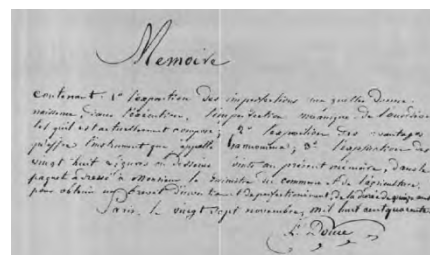 Memoire
contenant: 1º l'exposition des imperfections aux quelles donne
naissance, dans l'exécution, l'imperfection mécanique de
tel qu'il est actuellement composé; 2º l'exposition des avantages
qu'offre l'instrument que appelle harmonium; 3º l'explication des
vingt huit figures ou dessins joints au présent mémoire, dans le
paquet adressé à Monsieur le ministre du commerce et de l'agriculture,
pour obtenir un brevet d'invention et de perfectionnement, de la durée de quinze ans
Paris, le vingt sept novembre, mil huit cent quarante